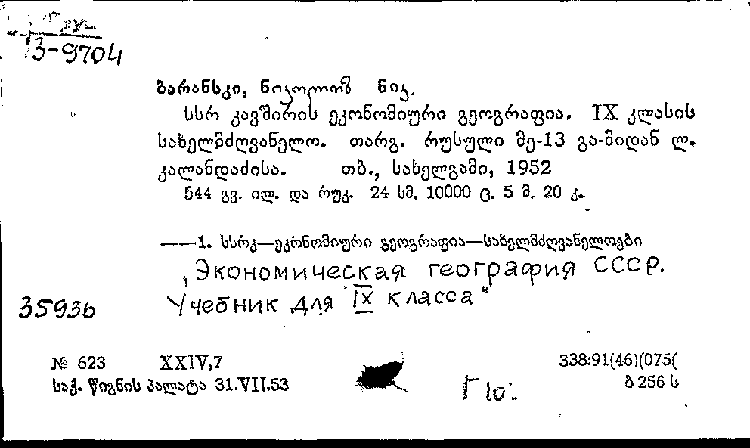 Гру
13-9704
ბარანსკი, ნიკოლოზ ნიკ.
სსრ კავშირის ეკონომიური გეოგრაფია. IX კლასის
სახელმძღვანელო. თარგ. რუსული მე-13 გა-მიდან ლ.
კალანდაძისა. თბ., სახელგამი, 1952
544 გვ. ილ. და რუკ. 24 სმ. 10000 ც. 5 მ. 20 კ.
——1. სსრკ—ეკონომიური გეოგრაფია—სახელმძღვანელოები
„Экономическая география СССР.
Учебник для IX класса"
3593ь
№ 623 XXIV,7 338:91(46)(075(
საქ. წიგნის პალატა 31.VII.53 ბ 256 ს